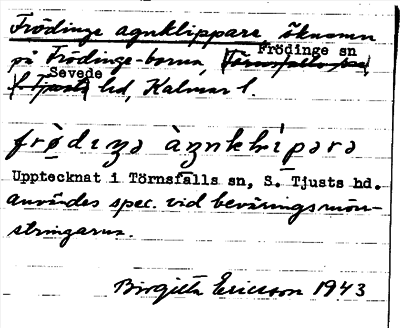 Frödinge agnklippare, öknamn
på Frödinge-borna, Frödinge sn
Sevede hd, Kalmar l.
frödiŋa àgnklìpara
Upptecknat i Törnsfalls sn, S. Tjusts hd.
användes spec. vid beväringsmön-
stringarna.
Birgitta Ericsson 1943